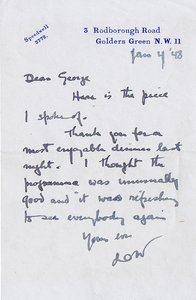 Speedwell
3772.
3 Rodborough Road
Golders Green N.W. 11
Jan 4 '48
Dear George
Here is the piece
I spoke of.
Thank you for a
most enjoyable dinner last
night. I thought the
programme was unusually
good and it was refreshing
to see everybody again
Yours ever
LOW